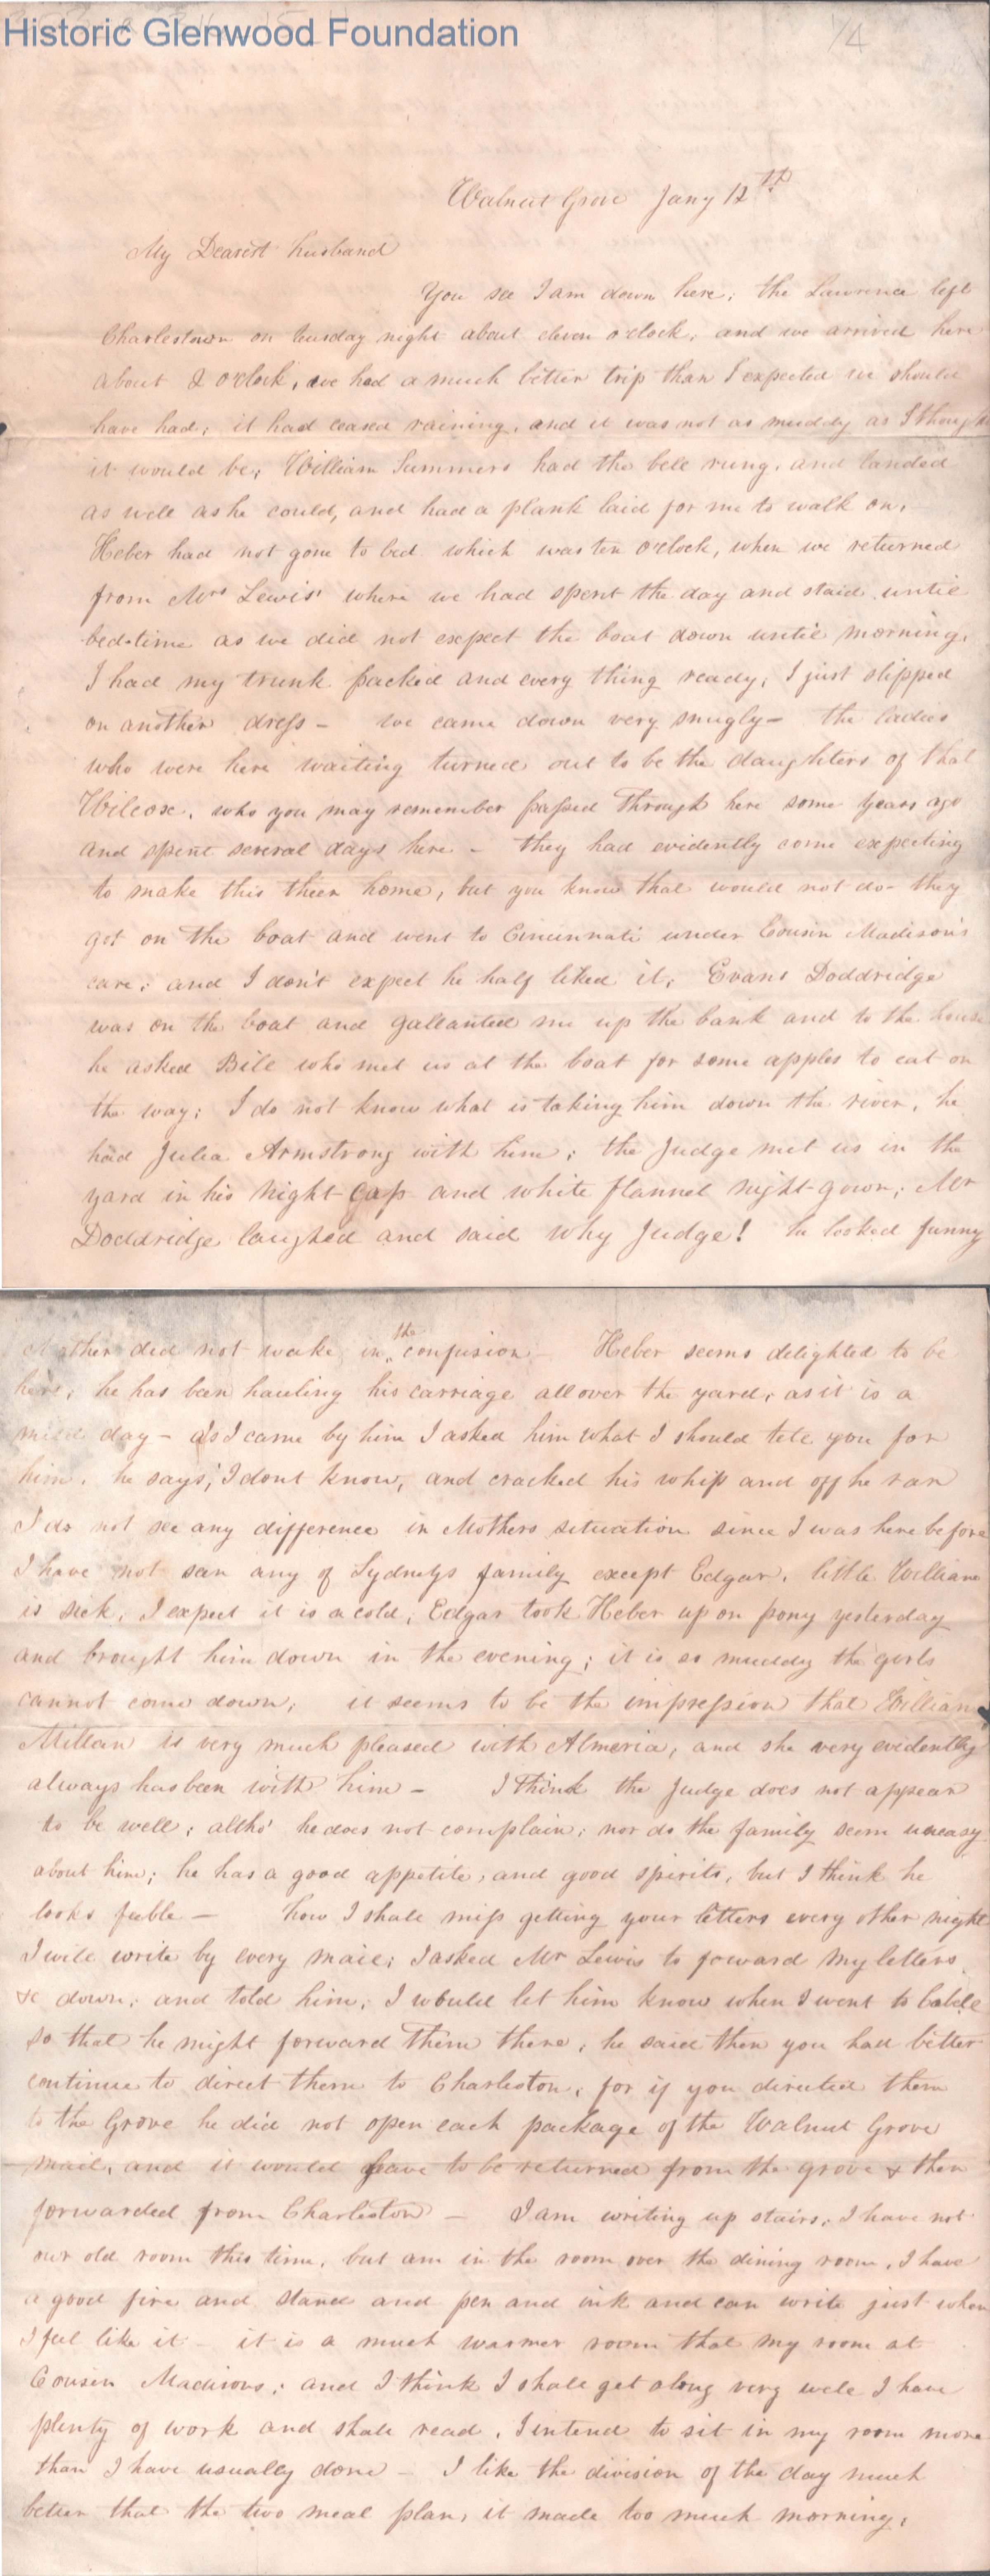 Historic Glenwood Foundation
1/4
Walnut Grove Jany 12th
My Dearest husband
You see I am down here; the Lawrence left
Charlestown on tuesday night about eleven o'clock; and we arrived here
about 2 o'clock, we had a much better trip than I expected we should
have had; it had ceased raining, and it was not as muddy as I thought
it would be; William Summers had the bell rung, and landed
as well as he could, and had a plank laid for me to walk on,
Heber had not gone to bed which was ten o'clock, when we returned
from Mrs Lewis' where we had spent the day and staid until
bed-time as we did not expect the boat down until morning,
I had my trunk packed and every thing ready, I just slipped
on another dress - we came down very snugly - the ladies
who were here waiting turned out to be the daughters of that
Wilcox, who you may remember passed through here some years ago
and spent several days here - they had evidently come expecting
to make this their home, but you know that would not do - they
got on the boat and went to Cincinnati under Cousin Madison's
care; and I don't expect he half liked it; Evans Doddridge
was on the boat and gallanted me up the bank and to the house
he asked Bill who met us at the boat for some apples to eat on
the way; I do not know what is taking him down the river, he
had Julia Armstrong with him; the Judge met us in the
yard in his night-cap and white flannel night-gown; Mr
Doddridge laughed and said why Judge! he looked funny
Mother did not wake in the confusion - Heber seems delighted to be
here, he has been hauling his carriage all over the yard, as it is a
mild day - as I came by him I asked him what I should tell you for
him, he says, I dont know, and cracked his whip and off he ran
I do not see any difference in Mothers situation since I was here before
I have not seen any of Sydneys family except Edgar, little William
is sick, I expect it is a cold; Edgar took Heber up on pony yesterday
and brought him down in the evening; it is so muddy the girls
cannot come down; it seems to be the impression that William
Millan is very much pleased with Almeria, and she very evidently
always has been with him - I think the Judge does not appear
to be well; altho' he does not complain; nor do the family seem uneasy
about him; he has a good appetite, and good spirits, but I think he
looks feeble - how I shall miss getting your letters every other night
I will write by every mail; I asked Mr Lewis to forward my letters
&c down; and told him, I would let him know when I went to
so that he might forward them there, he said then you had better
continue to direct them to Charleston, for if you directed them
to the Grove he did not open each package of the Walnut Grove
mail, and it would have to be returned from the grove & then
forwarded from Charleston - I am writing up stairs; I have not
our old room this time, but am in the room over the dining room, I have
a good fire and stand and pen and ink and can write just when
I feel like it - it is a much warmer room that my room at
Cousin Madisons; and I think I shall get along very well I have
plenty of work and shall read, I intend to sit in my room more
than I have usually done - I like the division of the day much
better that the two meal plan, it made too much morning,